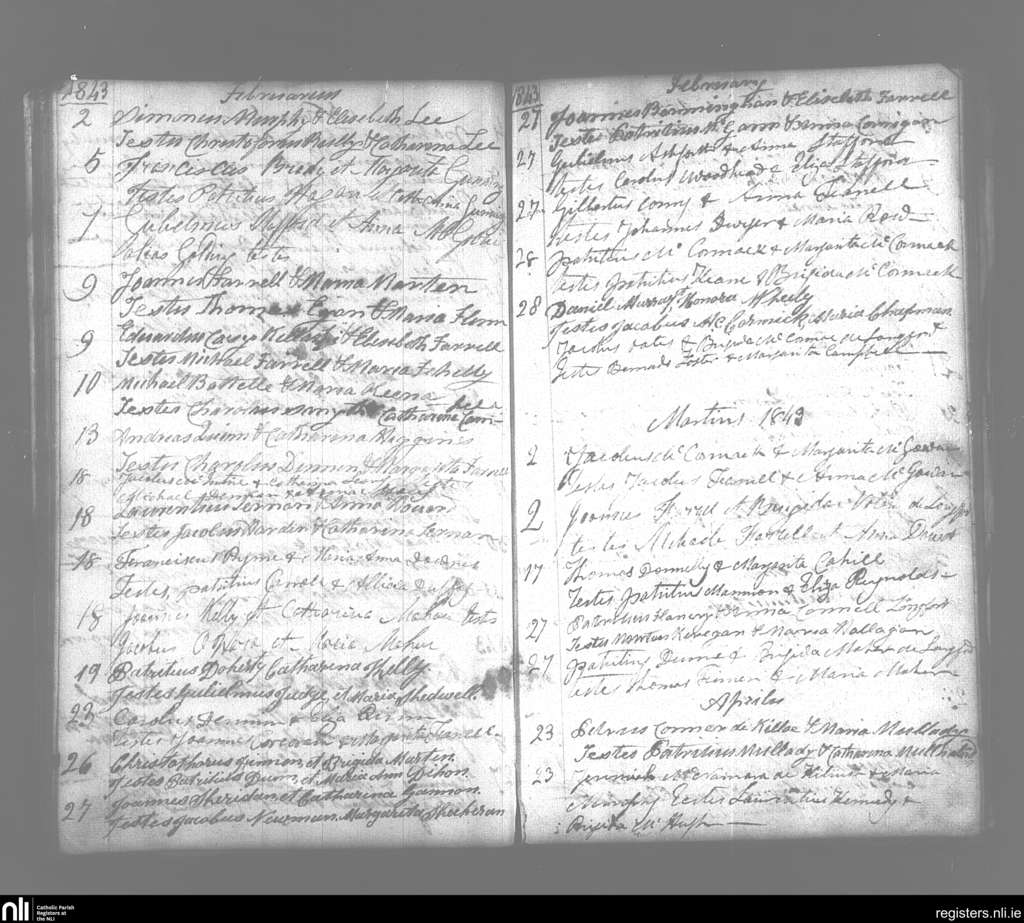 1843 Februarius
2 Simoneus Murphy & Elisebeth Lee
Testes Christoforus Reilly & Catharina Lee
5 Franciscus Bride et Margarite Gunning
Testes Patritius Hagan & Catharina Gunning
7 Gulielmus Stafford et Anna
alias testes
9 Joannes Farrell & Maria Marten
Testes Thomas Egan & Maria Flinn
9 Eduardus Casey Killashe & Elisebeth Farrell
Testes Michael Farrell & Maria Feheely
10 Michael Bottelle & Maria Keena
Testes Charolus Smythe Catharina
13 Andreas Quinn & Catharina Higgines
Testes Charolus Dinnen & Margarita Farrell
18 Jacobus & Catherina testes
Michael & Anna
18 Laurentius Fernan & Anna
Testes Jacobus Varden & Catharina Fernan
18 Franciscus Byrne & Maria Anna
Testes, patritius Carroll & Allicia Duffy
18 Joannes Kelly et Catharina Mehan Testes
Jacobus O Hara et Maria Meher
19 Patritius Doherty Catharina Skelly
Testes Gulielmus Judge, et Maria Shedwell
23 Carolus Dennin & Eliza
Testes Joannes Corcoran & Margarita Farrell
26 Christopharus Finnion, et Brigida Martin
Testes Patritius Dunn, et Maria Ann Dihon
27 Joannes Sheridan, et Catharina Gannon
Testes Jacobus Newman, Margarita Sheeheran
1843 February
27 Joannes Barminghan & Elisebeth Farrell
Testes Patritius McGann & Anna Corrigan
27 Gulielmus Ashforth & Anna Stafford
testes Carolus Woodhead & Eliza Stafford
27 Gilbertus Conry & Anna Farrell
testes Johannes Dwyer & Maria Reid
28 patritius McCormack & Margarita McCormack
testes patritius Keane & Brigida McCormack
28 Daniel Murray, Honora Sheely
Testes Jacobus McCormick, Maria Chapman
Jacobus Oates & Brigida McCormac de Longford
testes Bernardo Foster & Margarita Campbell
Martius 1843
2 Jacobus McCormack & Margarita McGowan
testes Jacobus Farrell & Anna McGowan
2 Joannes Farrel et Brigida de Longford
testes Michaele Farrell et Anna
17 Thomas Donnelly & Margarita Cahill
Testes patritius Mannion & Eliza Reynolds
27 Patritius Flanery & Anna Connell Longford
Testes Martain Kenegan & Maria Hallagan
27 patritius Dunne & Brigida Maher de Longford
testes Thomas Finnen & Maria Maher
Apriles
23 Petrus Connor de Killoe & Maria Mullady
Testes Patritius Mullady & Catharina Multhally
23 Jeremiah McNamara de & Maria
Murphy Testes Laurentius Kennedy &
Brigida McHugh
nli
Catholic Parish
Registers at
the NLI
registers.nli.ie